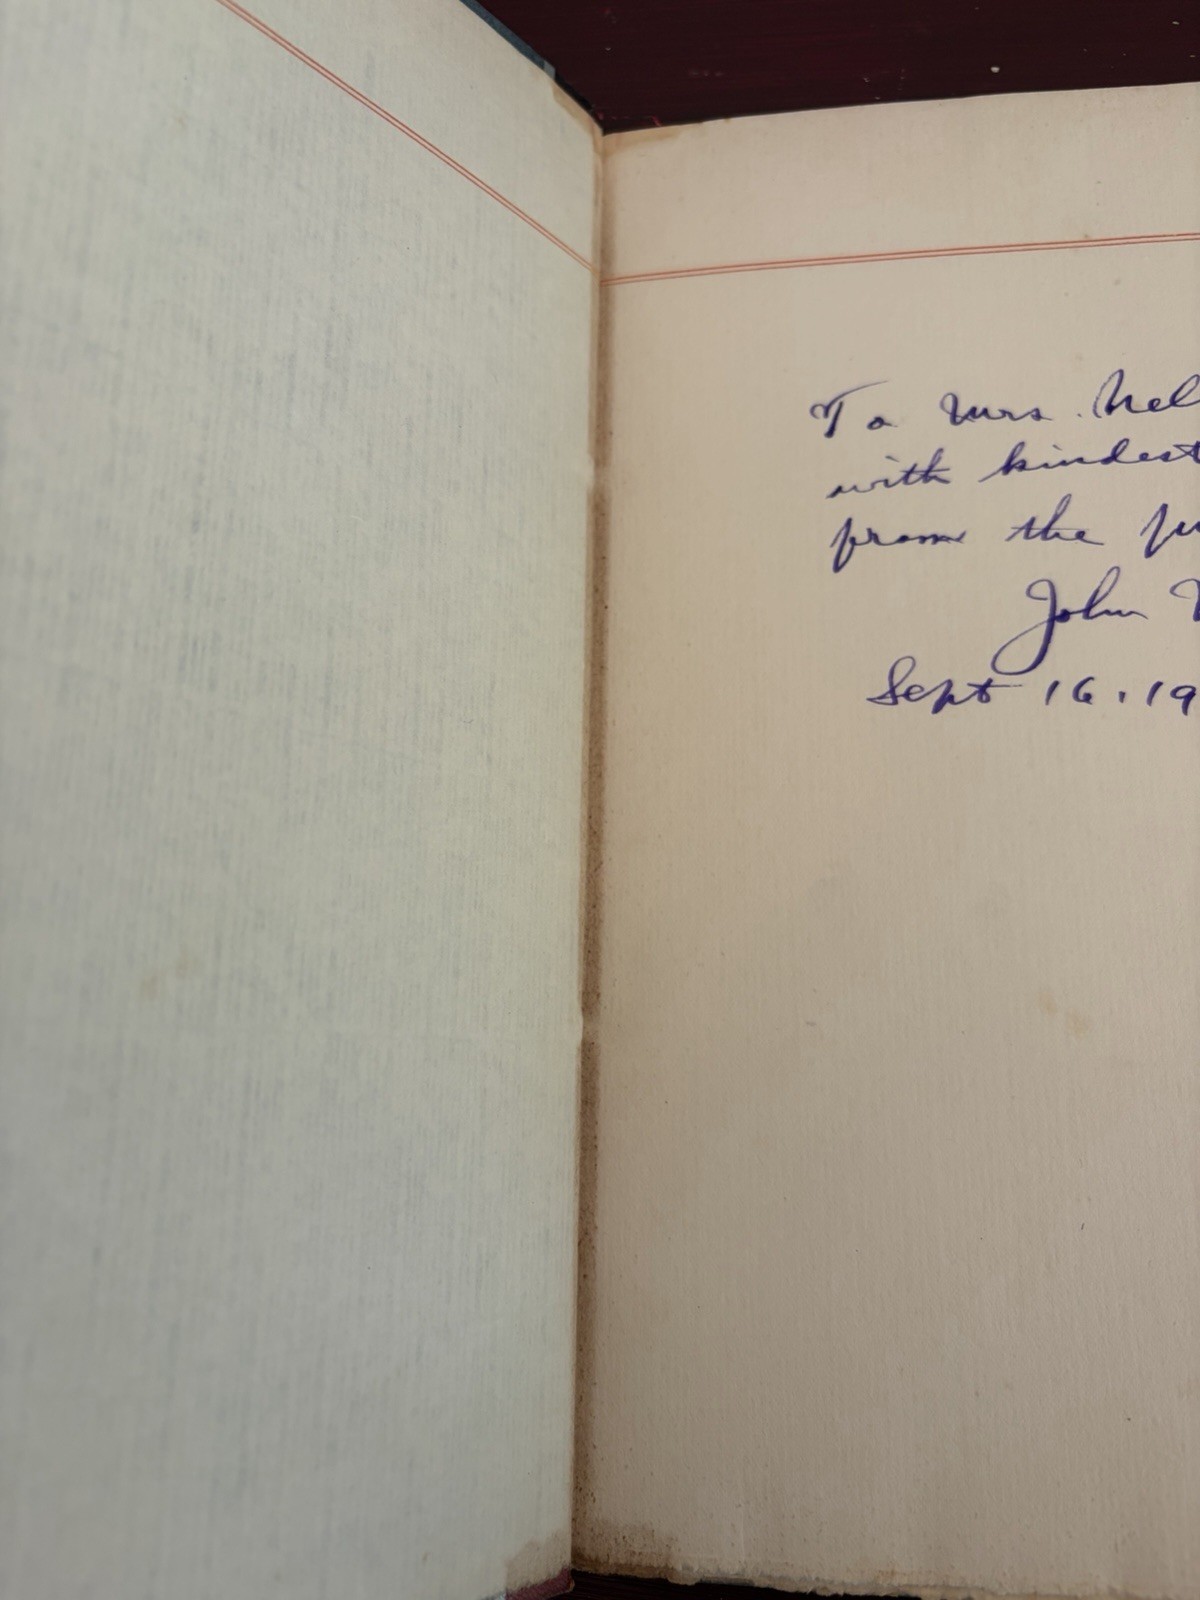 To Mrs. Nel
with kindest
from the pu
John
Sept 16.19